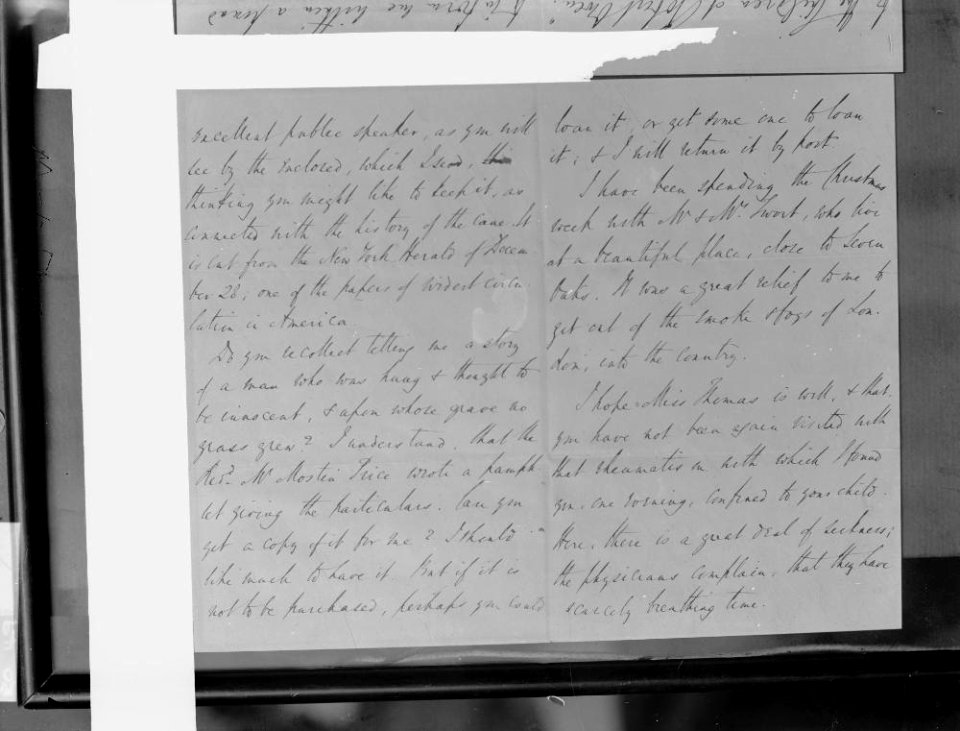 excellent public speaker, as you will
see by the enclosed, which I send, this
thinking you might like to keep it, as
connected with the history of the cause. It
is cut from the New York Herald of Decem
ber 28; one of the papers of widest circu
lation in America
Do you recollect telling me a story
of a man who was hung & thought to
be innocent, & upon whose grave no
grass grew? I understand, that the
Revd. Mr Mostin Price wrote a pamph
let giving the particulars. Can you
get a copy of it for me? I should
like much to have it. But if it is
not to be purchased, perhaps you could
loan it, or get some one to loan
it; & I will return it by post.
I have been spending the Christmas
week with Mr & Mrs. , who live
at a beautiful place, close to Seven
Oaks. It was a great relief to me to
get out of the smoke & fogs of Lon-
don, into the country.
I hope Miss Thomas is well, & that
you have not been again visited with
that rheumatism with which I found
you, one morning, confined to your child.
Here, there is a great deal of sickness;
the physicians complain, that they have
scarcely breathing time.